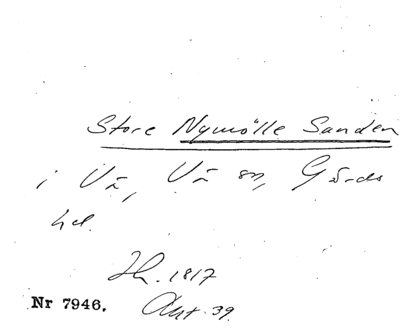 Store Nymölle Sanden
i Vä, Vä sn, Gärds
hd.
Jh. 1817
Nr 7946. Akt. 39.